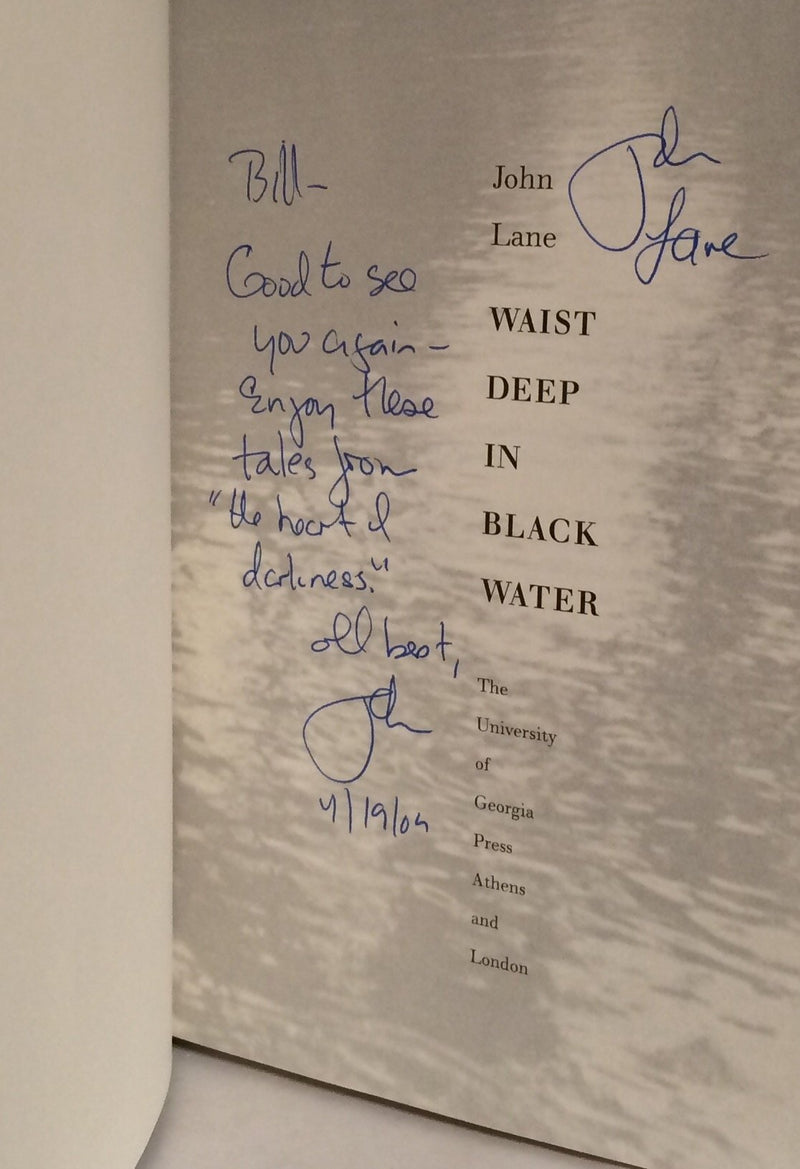 Bill–
Good to see
you again –
Enjoy these
tales from
"the heart of
darkness."
all best,
John
4/19/04
John
Lane
John
Lane
WAIST
DEEP
IN
BLACK
WATER
The
University
of
Georgia
Press
Athens
and
London